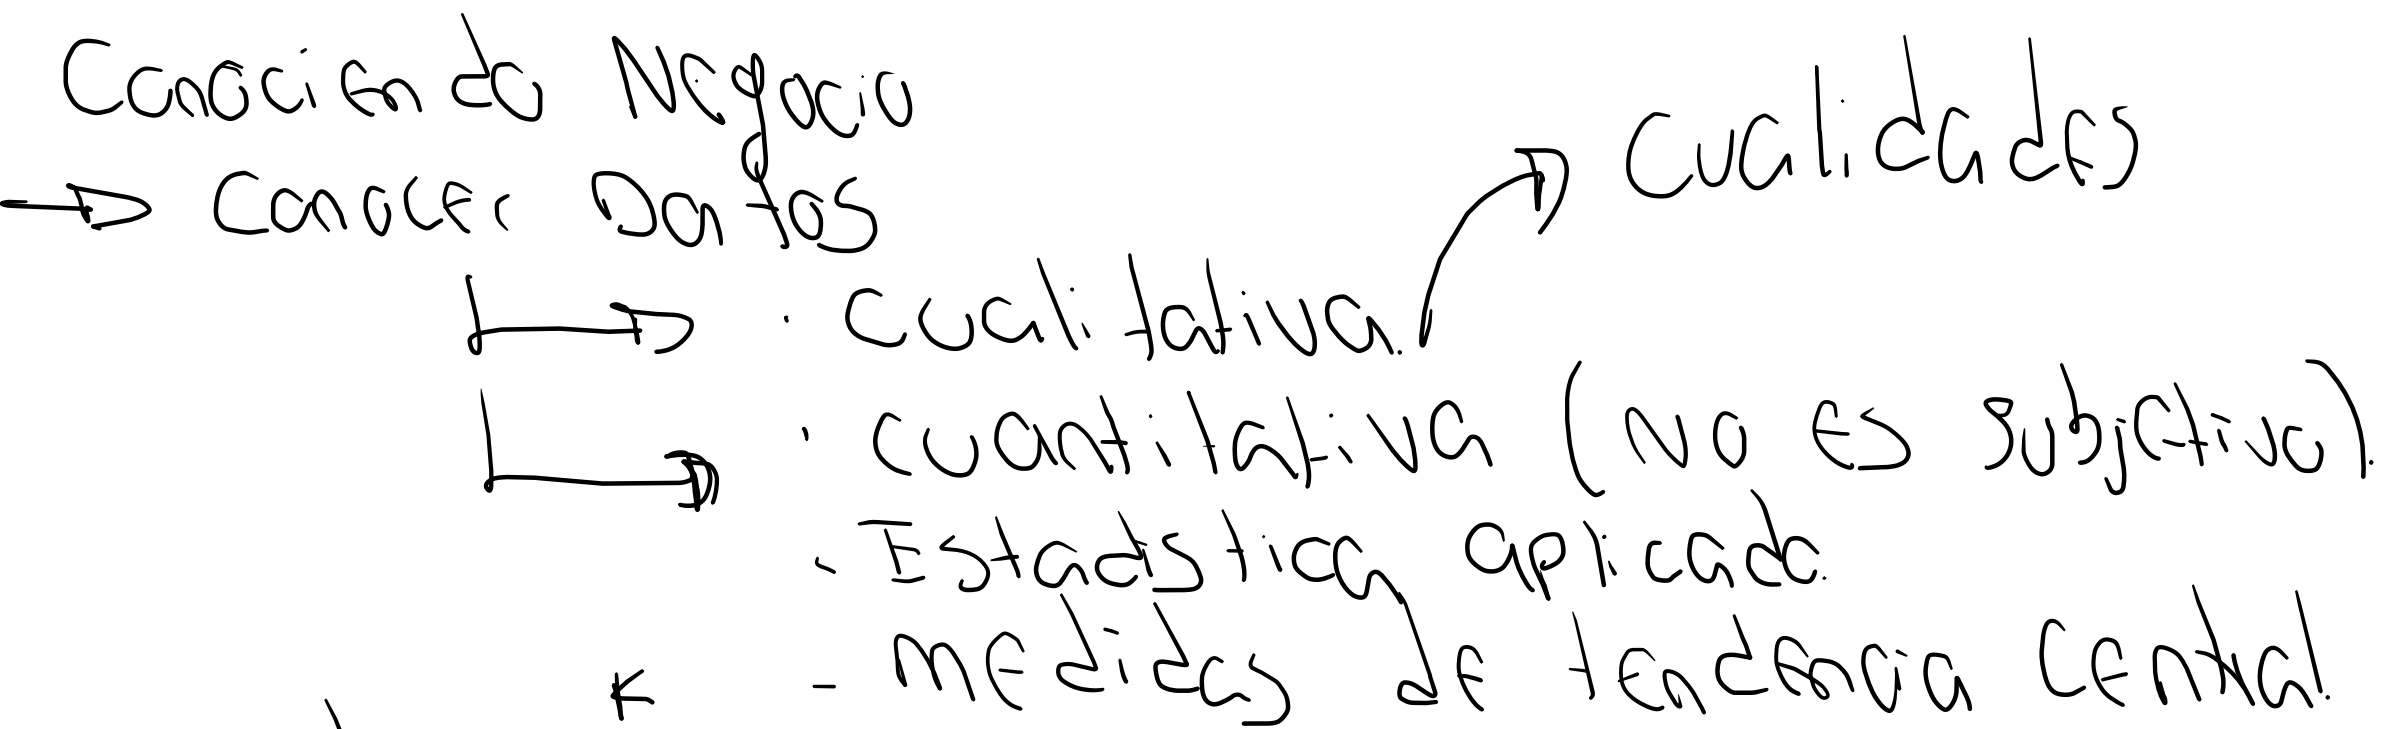 Conociendo Negocio
Cualidades
Conocer Datos
· Cualitativa.
· Cuantitativa (No es subjetivo).
- Estadistica aplicada.
- Medidas de tendencia central.